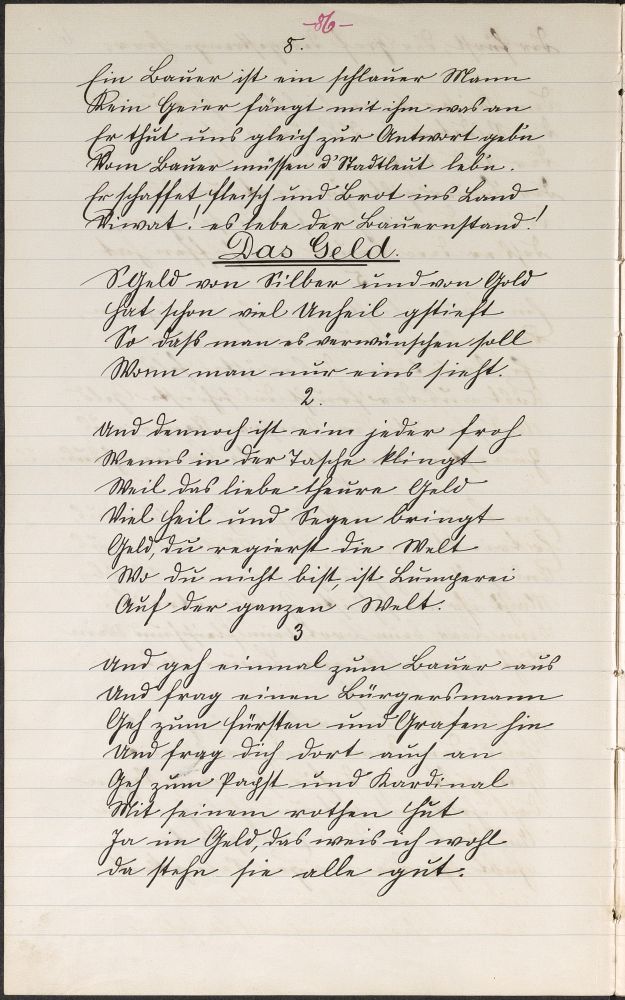 -86-
8.
Ein Bauer ist ein schlauer Mann
Kein Geier fängt mit ihm was an
Er thut uns gleich zur Antwort gebn
Vom Bauer müssen d'Stadtleut lebn.
Er schaffet Fleisch und Brot ins Land
Vivat! es lebe der Bauernstand!
Das Geld.
S'Geld von Silber und von Gold
Hat schon viel Unheil gstieft
So dass man es verwünschen soll
Wenn man nur eins sieht.
2.
Und dennoch ist ein jeder froh
Wenns in der Tasche klingt
Weil das liebe theure Geld
Viel Heil und Segen bringt
Geld, du regierst die Welt
Wo du nicht bist, ist Lumperei
Auf der ganzen Welt.
3
Und geh einmal zum Bauer aus
Und frag einen Bürgersmann
Geh zum Fürsten und Grafen hin
Und frag dich dort auch an
Geh zum Papst und Kardinal
Mit seinem rothen Hut
Ja im Geld, das weis ich wohl
da stehn sie alle gut.